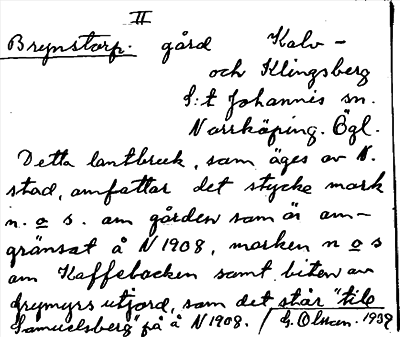 II
Brynstorp. gård Kalv-
och Klingsberg
S:t Johannis sn.
Norrköping. Ögl.
Detta lantbruk, som äges av N.
stad, omfattar det stycke mark
n. o s. om gården som är om-
gränsat å N 1908, marken n o s
om Kaffebacken samt biten av
Grymyrs utjord, som det står "till
Samuelsberg" på å N 1908. G. Olsson. 1939